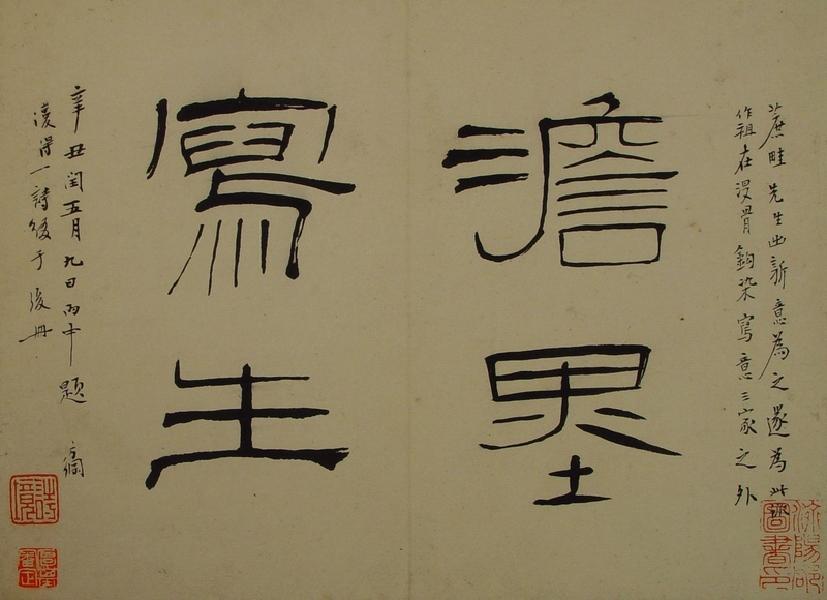 蔗畦先生出新意為之遂為此
作祖在沒骨鈎染寫意三家之外
澹墨
寫生
辛丑閏五月九日雨中題
復得一詩于後冊